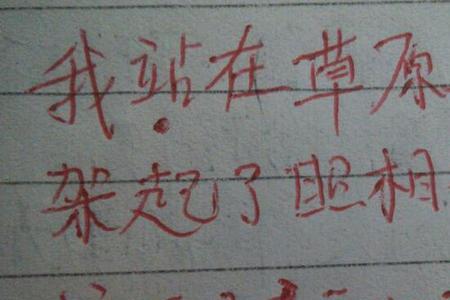 我站在草原
架起了照相